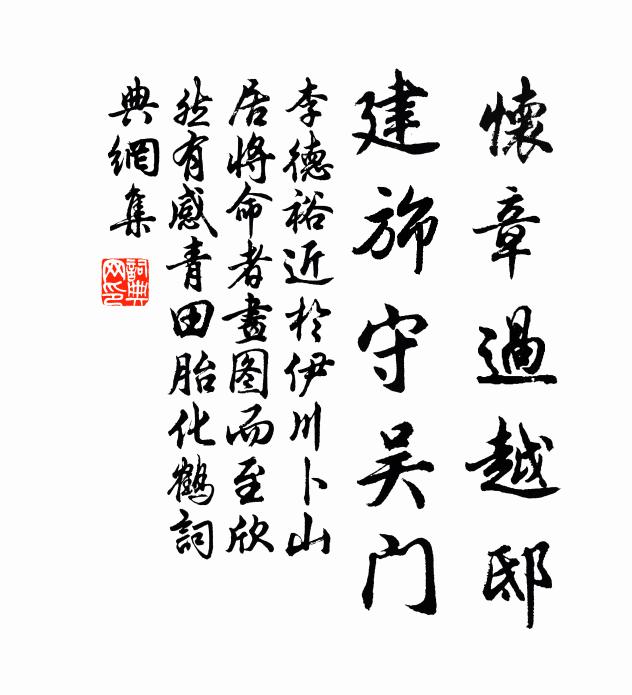 懷章過越邸
建旆守吴门
李德裕近於伊川卜山
居將命者畫图而至欣
然有感青田胎化鶴詞
典網集
詞典网印